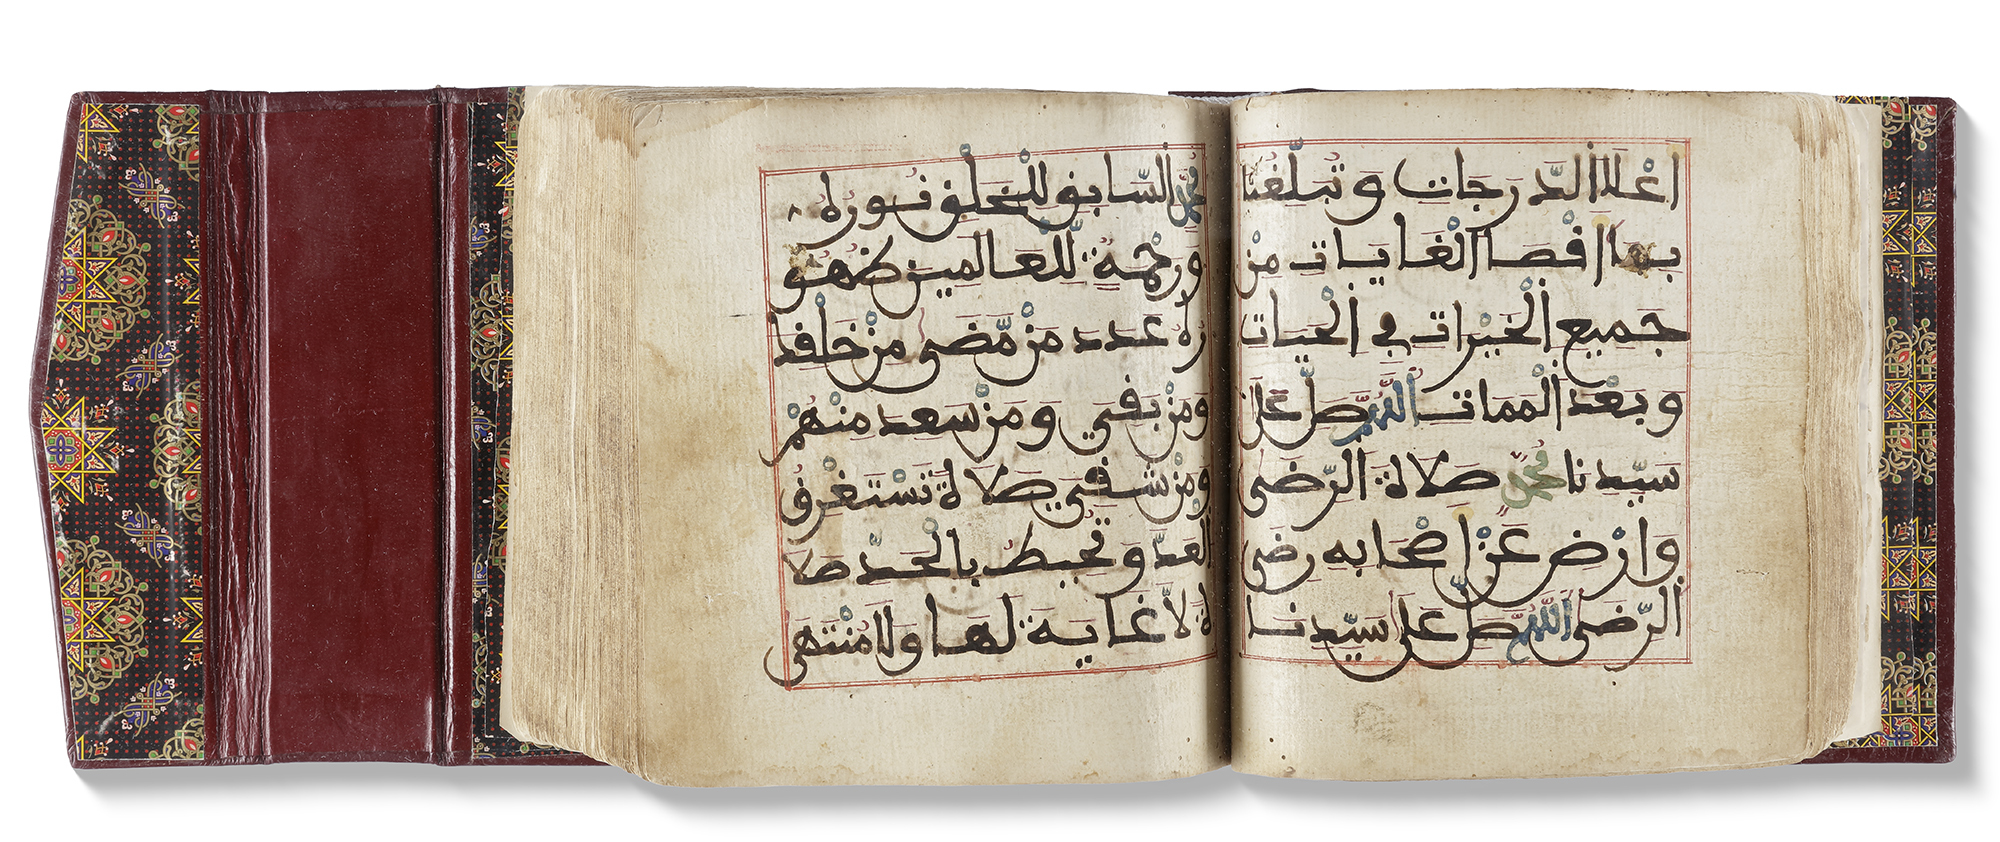 اعلا الدرجات وتبلغنا
بها اقصا الغايات من
جميع الخيرات في الحيات
وبعد الممات اللهم صل على
سيدنا محمد صلاة الرضى
وارض عن اصحابه رضى
الرضى اللهم صل على سيدنا
محمد السابق للخلق نوره
ورحمة للعالمين ظهو
ره عدد من مضى من خلقك
ومن بقي ومن سعد منهم
ومن شقي صلاة تستغرق
العد وتحيط بالحد صلا
ة لا غاية لها ولا منتهى